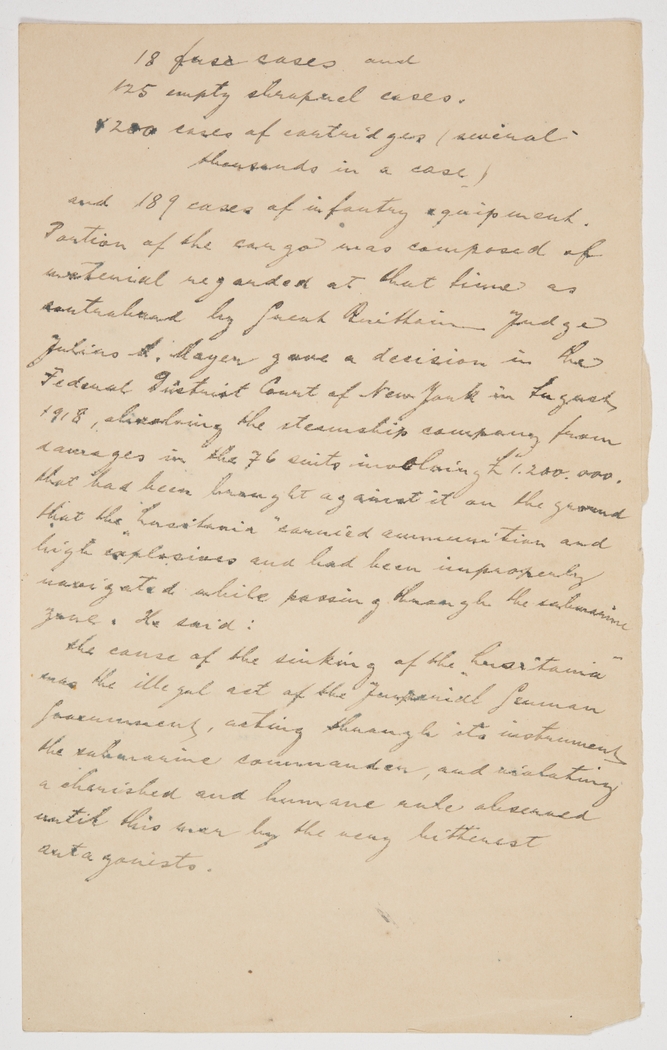 18 fuse cases and
125 empty shrapnel cases.
4200 cases of cartridges (several
thousands in a case)
and 189 cases of infantry equipment.
Portion of the cargo was composed of
material regarded at that time as
contraband by Great Brittain Judge
Julius M. Mayer gave a decision in the
Federal District Court of New York in August,
1918, absolving the steamship company from
damages in the 76 suits involving £1.200.000.
that had been brought against it on the ground
that the "Lusitania" carried ammunition and
high explosives and had been improperly
navigated while passing through the submarine
zone. He said:
the cause of the sinking of the "Lusitania"
was the illegal act of the Imperial German
Government, acting through its instrument,
the submarine commander, and violating
a cherished and humane rule observed
until this war by the very bitterest
antagonists.